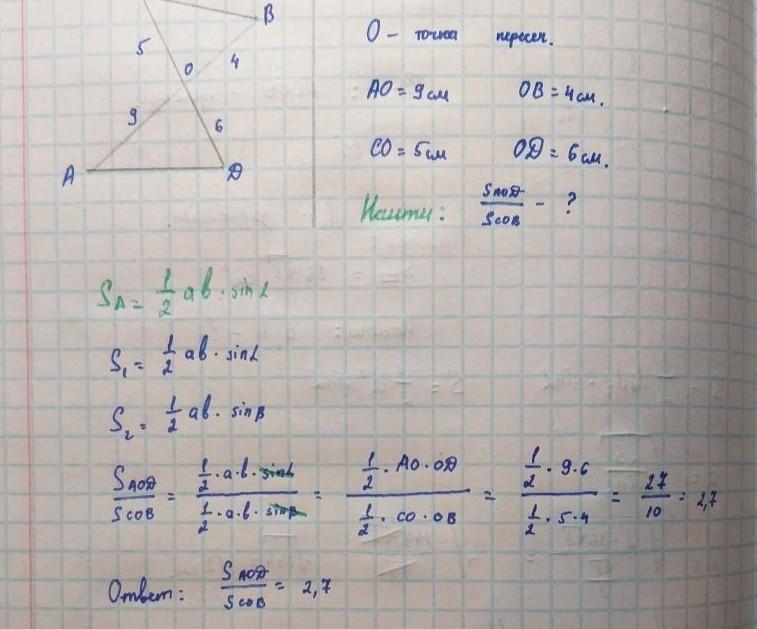 B
5
4
O
9
6
A
D
O - точка пересеч.
AO = 9 см OB = 4 см.
CO = 5 см OD = 6 см.
Найти: S AOD / S COB - ?
S∆ = 1/2 ab · sin α
S₁ = 1/2 ab · sin α
S₂ = 1/2 ab · sin β
S AOD / S COB = (1/2 · a · b · sin α) / (1/2 · a · b · sin β) = (1/2 · AO · OD) / (1/2 · CO · OB) = (1/2 · 9 · 6) / (1/2 · 5 · 4) = 27/10 = 2,7
Ответ: S AOD / S COB = 2,7